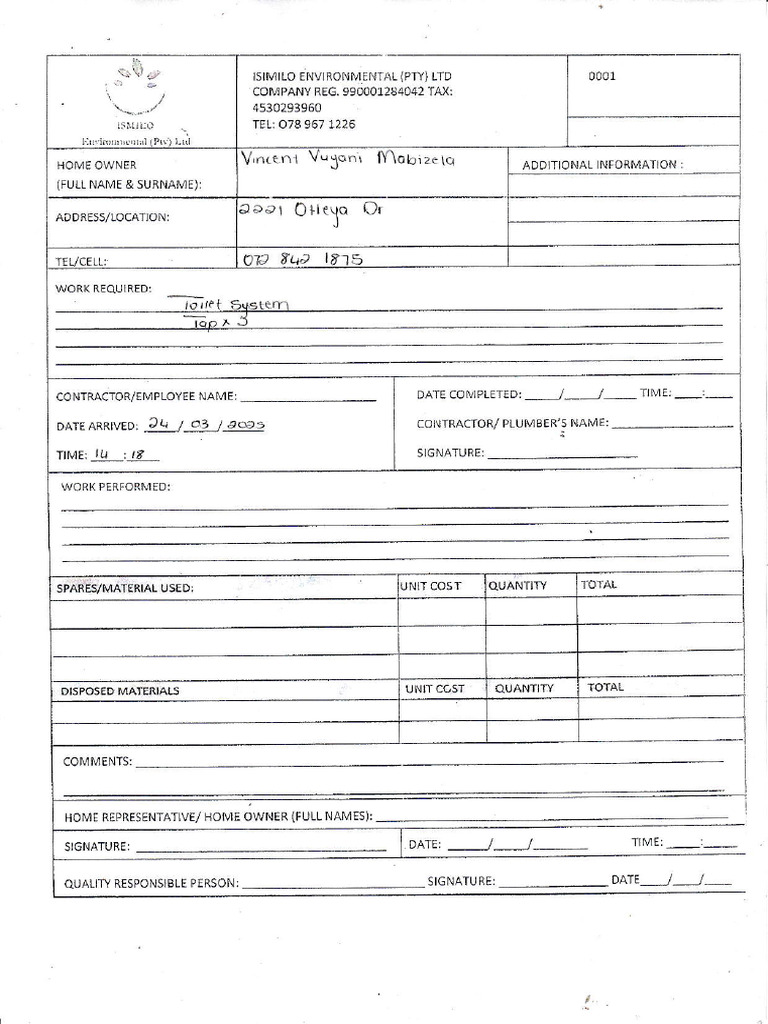 ISMILO
Environmental (Pty) Ltd
ISIMILO ENVIRONMENTAL (PTY) LTD
COMPANY REG. 990001284042 TAX:
4530293960
TEL: O78 967 1226
0001
HOME OWNER
(FULL NAME & SURNAME):
Vincent Vuyani Mabizela
ADDITIONAL INFORMATION :
ADDRESS/LOCATION:
2221 Dr
TEL/CELL:
072 842 1875
WORK REQUIRED:
Toilet System
Tap x 3
CONTRACTOR/EMPLOYEE NAME: ____________
DATE COMPLETED: _____/_____/_____ TIME: ____:____
DATE ARRIVED: 24 / 03 / 2025
CONTRACTOR/ PLUMBER'S NAME: ____________
TIME: 14 : 18
SIGNATURE: ____________
WORK PERFORMED:
SPARES/MATERIAL USED: UNIT COST QUANTITY TOTAL
DISPOSED MATERIALS UNIT COST QUANTITY TOTAL
COMMENTS: ____________
HOME REPRESENTATIVE/ HOME OWNER (FULL NAMES): ____________
SIGNATURE: ____________ DATE: _____/_____/_____ TIME: _____:____
QUALITY RESPONSIBLE PERSON: ____________ SIGNATURE: ____________ DATE____/____/____